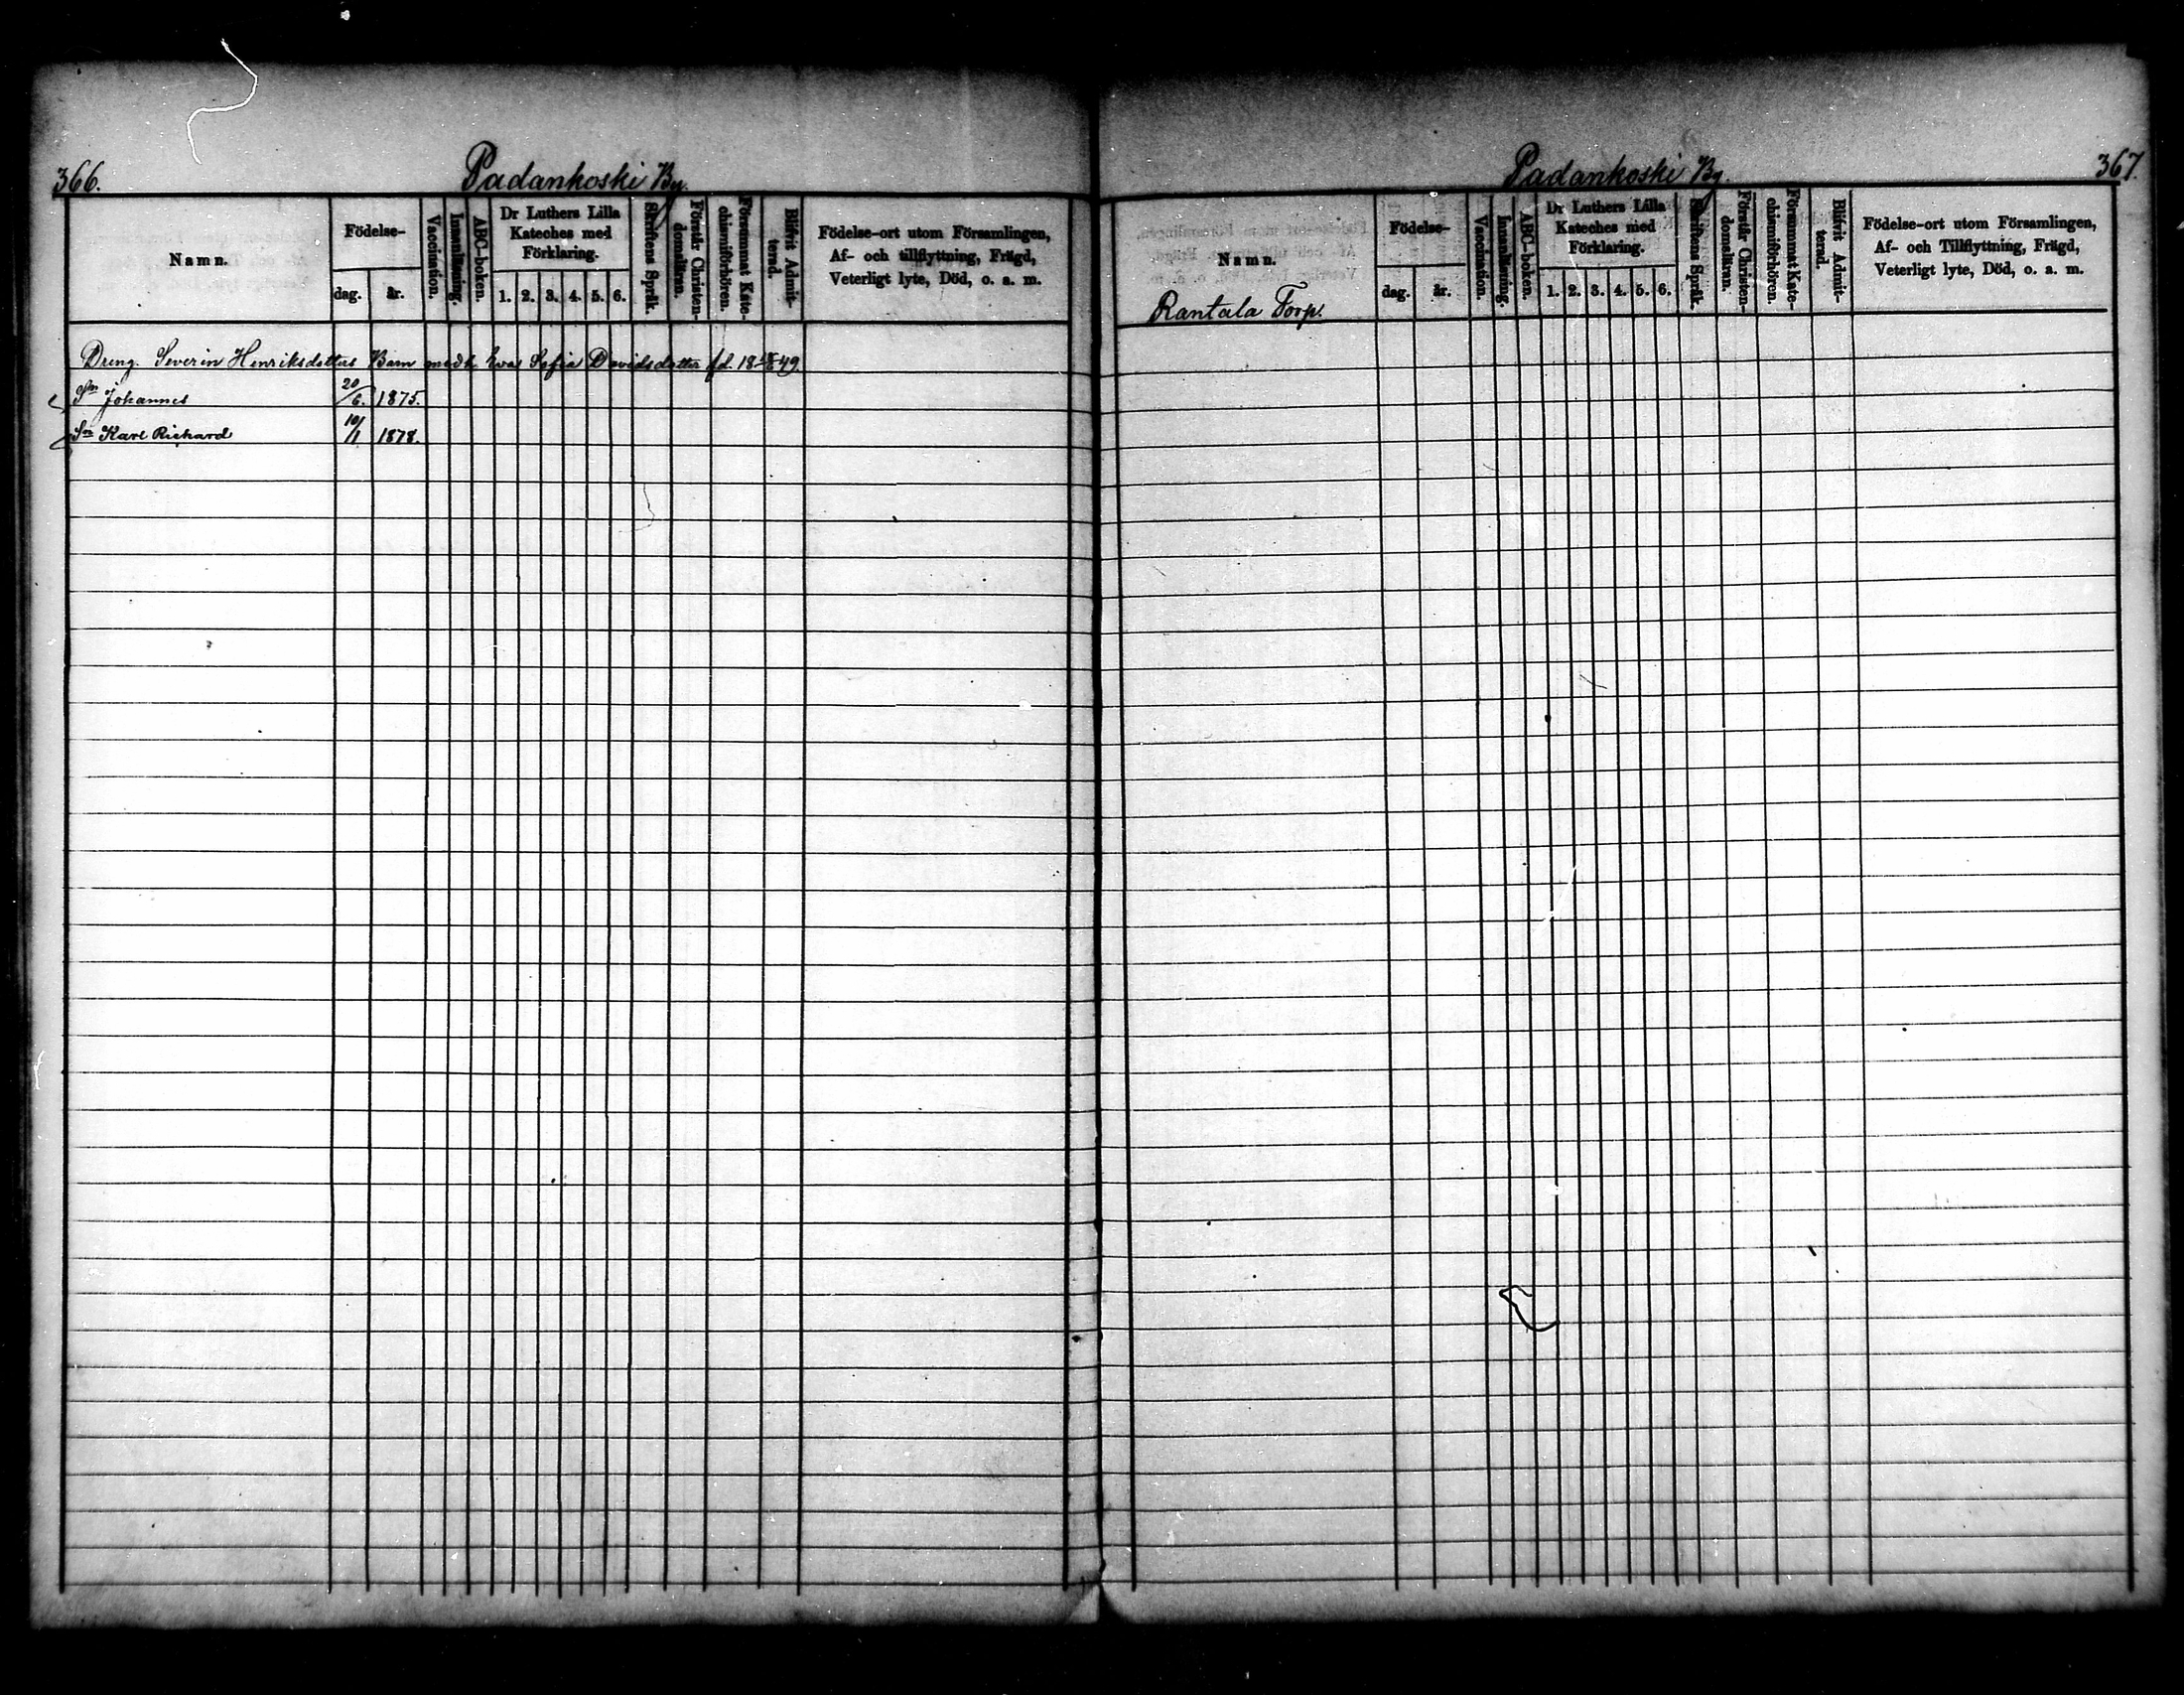 366.
Padankoski By.
Namn.
Födelse-
dag.
år.
Vaccination.
Innanläsning.
ABC-boken.
Dr Luthers Lilla
Kateches med
Förklaring.
1. 2. 3. 4. 5. 6.
Skriftens Språk.
Förstår Christen-
domsläran.
Försummat Kate-
chismiförhören.
Blifvit Admit-
terad.
Födelse-ort utom Församlingen,
Af- och tillflyttning, Frägd,
Veterligt lyte, Död, o. a. m.
Dreng. Severin Henriksdotters Barn medh Eva Sofia Davidsdotter fd.
Sn Johannes 20/6. 1875.
Sn Karl Richard 10/1 1878.
367.
Padankoski By.
Namn.
Rantala Torp.
Födelse-
dag.
år.
Vaccination.
Innanläsning.
ABC-boken.
Dr Luthers Lilla
Kateches med
Förklaring.
1. 2. 3. 4. 5. 6.
Skriftens Språk.
Förstår Christen-
domsläran.
Försummat Kate-
chismiförhören.
Blifvit Admit-
terad.
Födelse-ort utom Församlingen,
Af- och Tillflyttning, Frägd,
Veterligt lyte, Död, o. a. m.